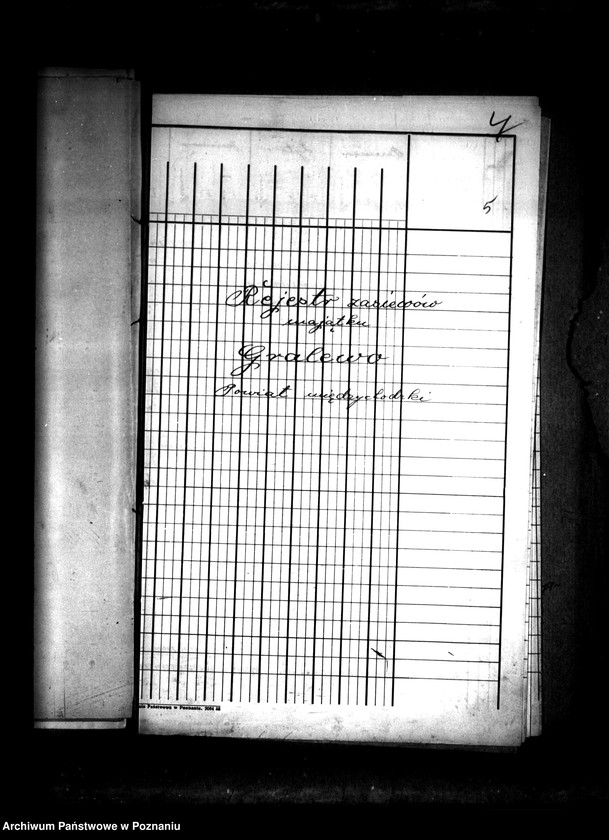 4
5
Rejestr zasiewów
majątku
Gralewo
Powiat międzychodzki
Państwowa w Poznaniu.
Archiwum Państwowe w Poznaniu